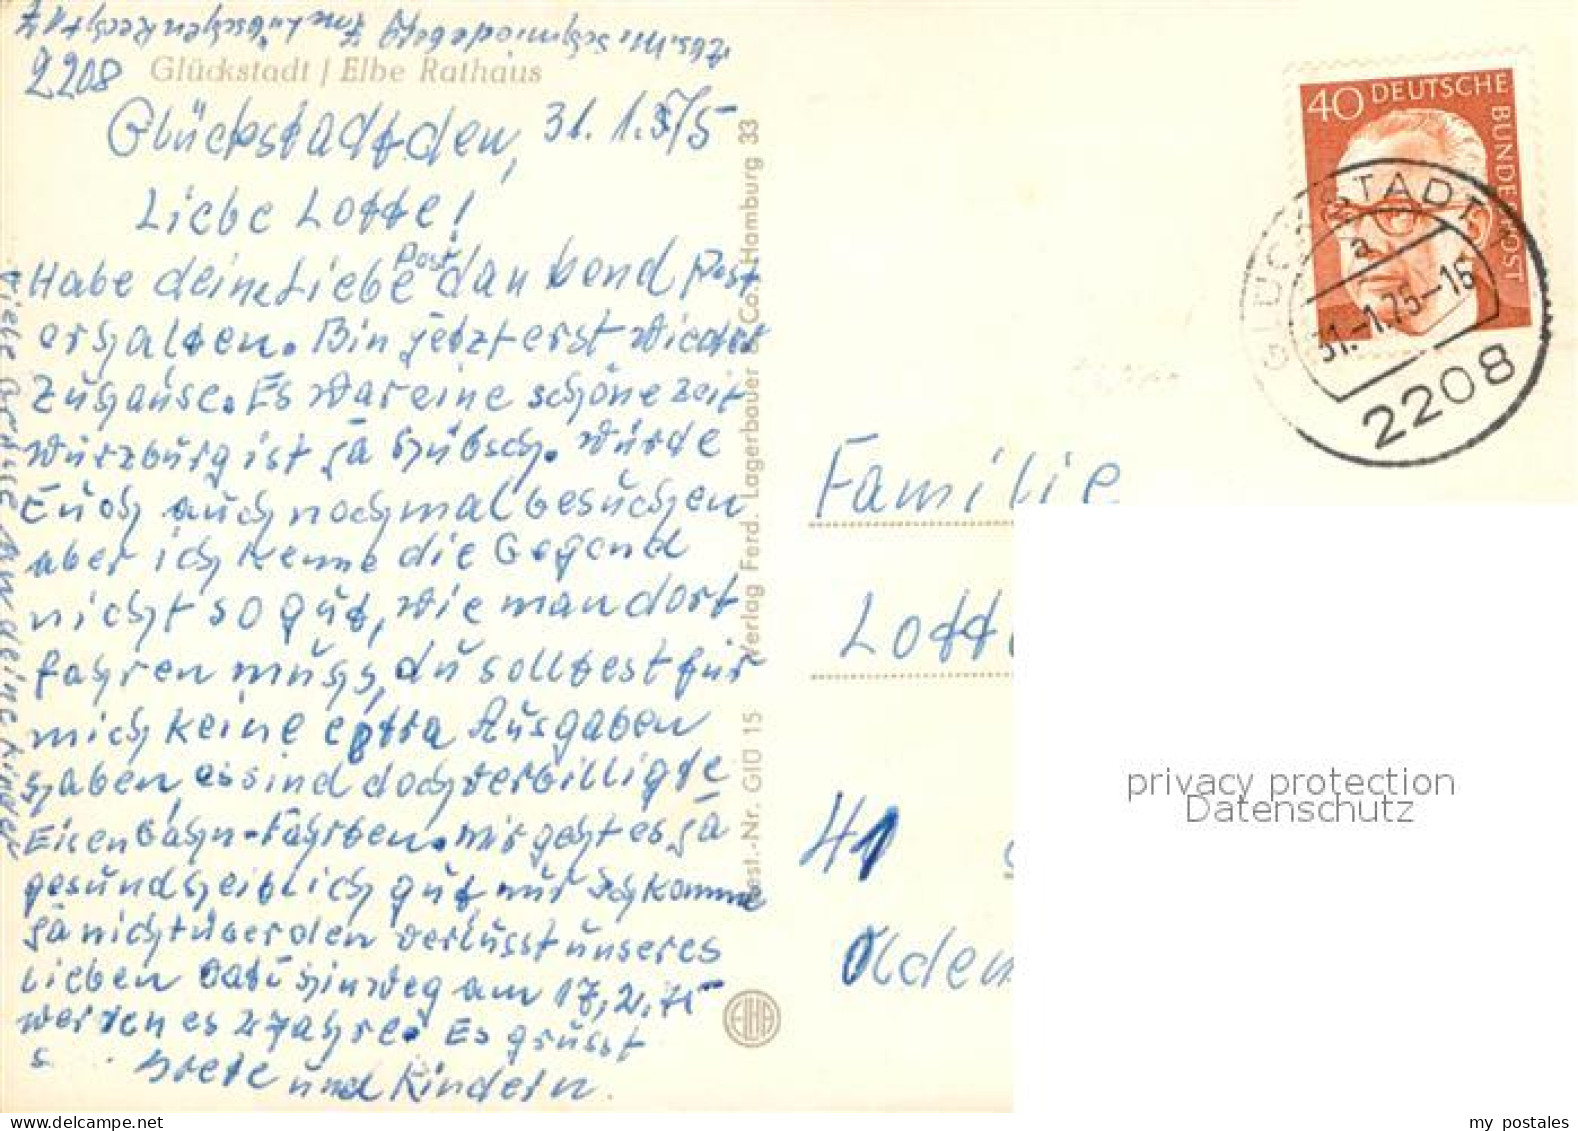 2208
Glückstadt / Elbe Rathaus
Glückstadt den, 31. 1. 75
Liebe Lotte!
Habe deine Liebe Post dankend Post
erhalten. Bin jetzt erst wieder
Zuhause. Es war eine schöne Zeit
Würzburg ist ja hübsch. Würde
Euch auch nochmal besuchen
aber ich kenne die Gegend
nicht so gut, wie man dort
fahren muss, du solltest für
mich keine extra Ausgaben
haben, es sind doch verbilligte
Eisenbahn-Fahrten. Mir geht es ja
gesundheitlich gut nur ich komme
ja nicht über den Verlusst unseres
lieben hinweg am 17.2.75
werden es 2 Jahre. Es grüsst
Grete und Kindern.
Viele Grüsse an deine Kinder
Best.-Nr. Glü 15 Verlag Ferd. Lagerbauer & Co. Hamburg 33
ELHA
40 DEUTSCHE BUNDESPOST
GLÜCKSTADT 1
a
31.-1.75-16
2208
Familie
41
privacy protection
Datenschutz
my postales